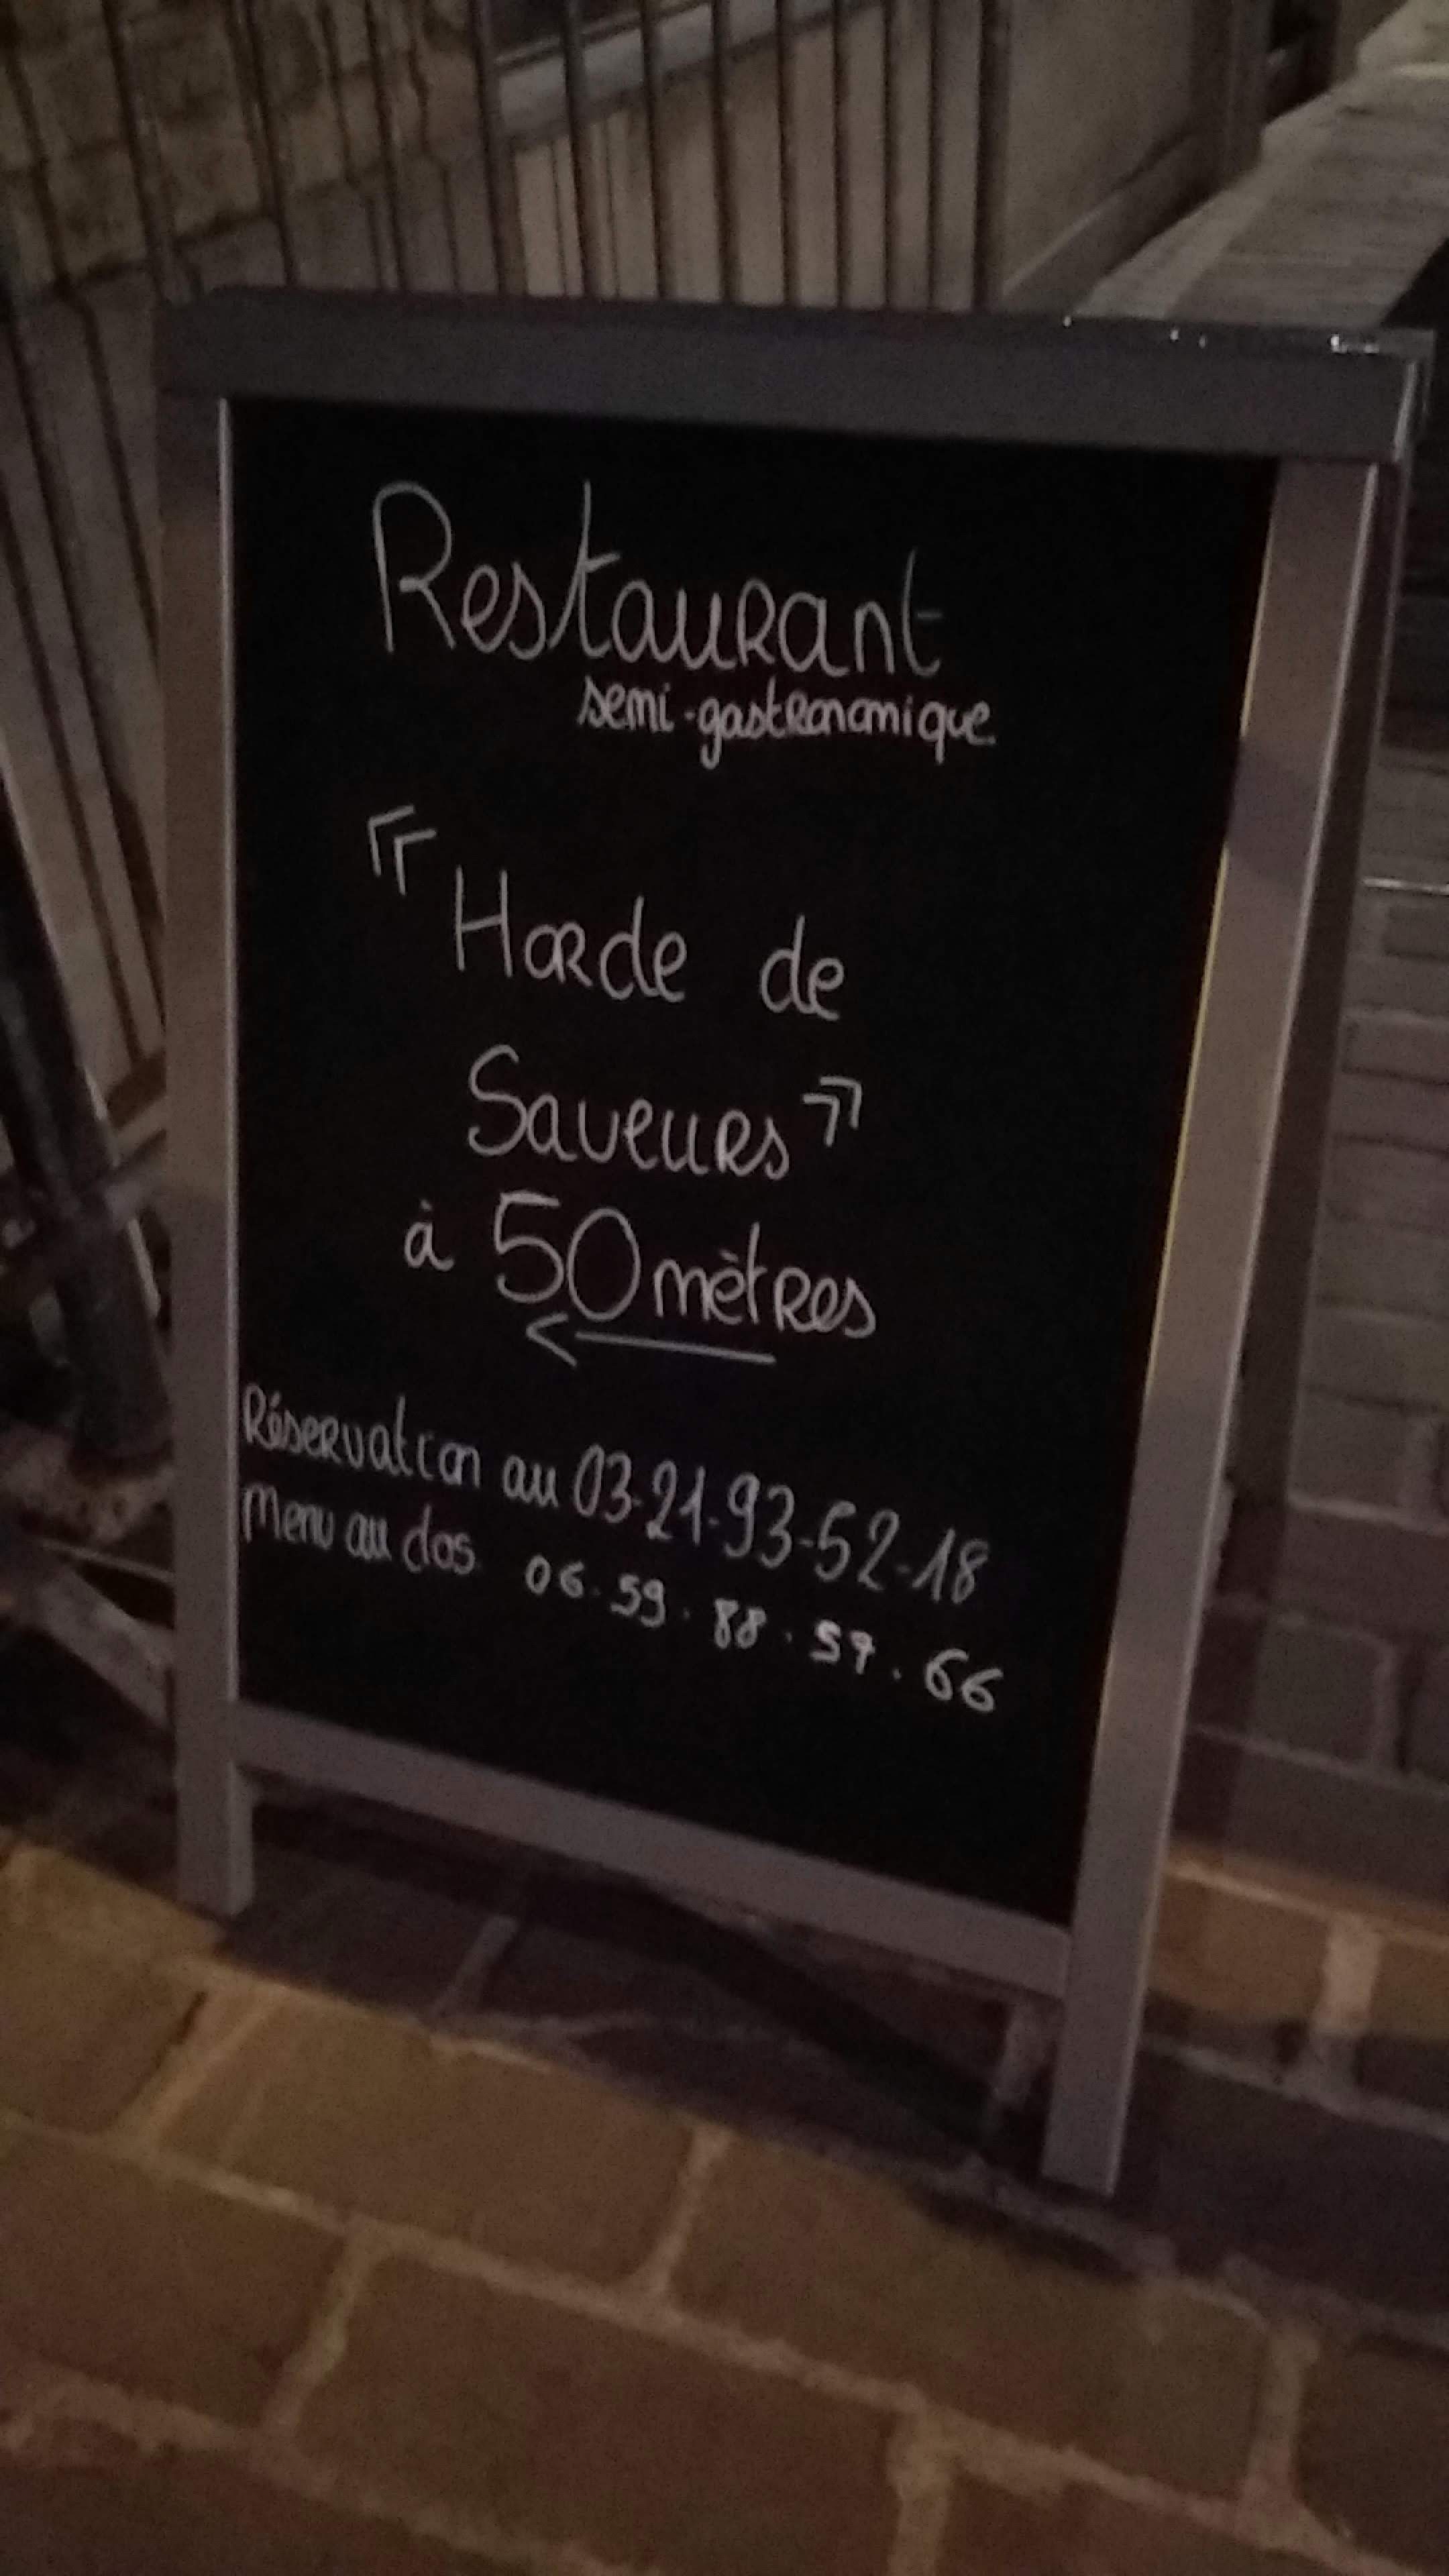 Restaurant
semi-gastronomique
« Horde de
Saveurs »
à 50 mètres
←
Réservation au 03-21-93-52-18
Menu au dos 06.59.88.57.66